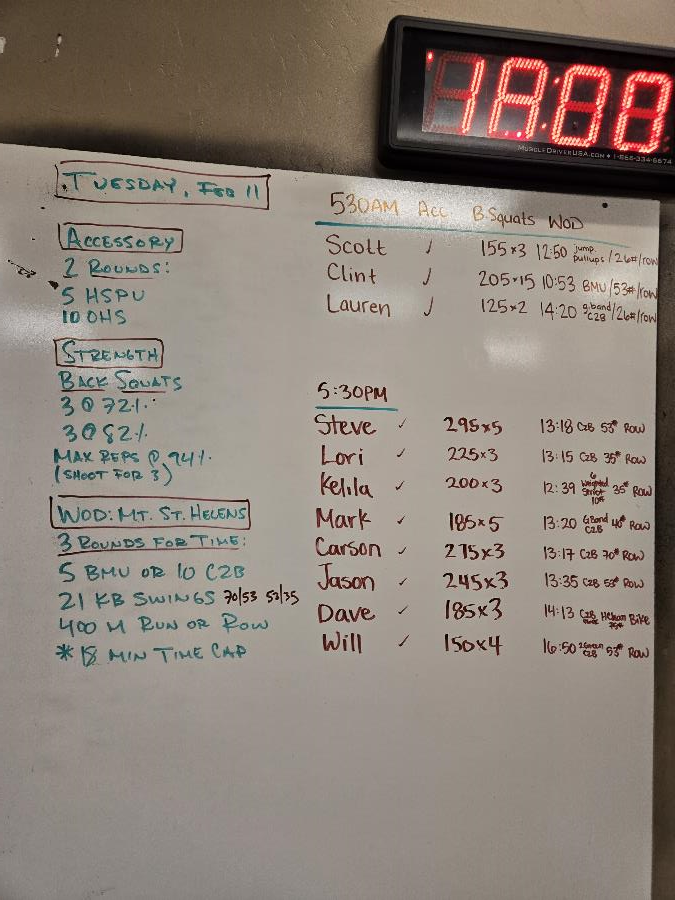 18:00
MUSCLEDRIVERUSA.COM • 1-888-334-8674
TUESDAY, FEB 11
ACCESSORY
2 ROUNDS:
5 HSPU
10 OHS
STRENGTH
BACK SQUATS
3 @ 72%
3 @ 82%
MAX REPS @ 94%
(SHOOT FOR 3)
WOD: MT. ST. HELENS
3 ROUNDS FOR TIME:
5 BMU OR 10 C2B
21 KB SWINGS 70/53 53/35
400 M RUN OR ROW
* 18 MIN TIME CAP
530AM Acc B.Squats WOD
Scott ✓ 155×3 12:50 jump pullups /26#/row
Clint ✓ 205×15 10:53 BMU/53#/row
Lauren ✓ 125×2 14:20 g.band C2B /26#/row
5:30PM
Steve ✓ 295×5 13:18 C2B 53# ROW
Lori ✓ 225×3 13:15 C2B 35# ROW
Kelila ✓ 200×3 12:39 6 Weighted Strict 10# 35# ROW
Mark ✓ 185×5 13:20 G Band C2B 40# ROW
Carson ✓ 275×3 13:17 C2B 70# ROW
Jason ✓ 245×3 13:35 C2B 53# ROW
Dave ✓ 185×3 14:13 C2B Bike
Will ✓ 150×4 16:50 C2B 53# ROW